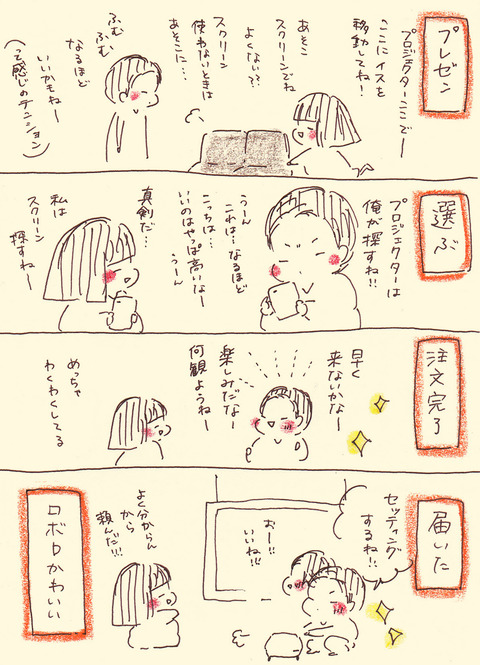 プレゼン
プロジェクターここでー
ここにイスを
移動してね!
あそこ
スクリーンでね
よくない??
スクリーン
使わないときは
あそこに…
ふむ
ふむ
なるほど
いいかもねー
(って感じのテンション)
選ぶ
プロジェクターは
俺が探すね!!
うーん
これは…なるほど
こっちは…
いいのはやっぱ高いなー
うーん
真剣だ…
私は
スクリーン
探すねー
注文完了
早く
来ないかなー
楽しみだなー
何観ようねー
めっちゃ
わくわくしてる
届いた
セッティング
するね!!
おー!!
いいね!!!
よく分からん
から
頼んだ!!!
ロボロかわいい